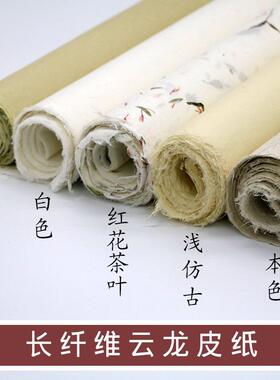 白色
红花茶叶
浅仿古
本色
长纤维云龙皮纸